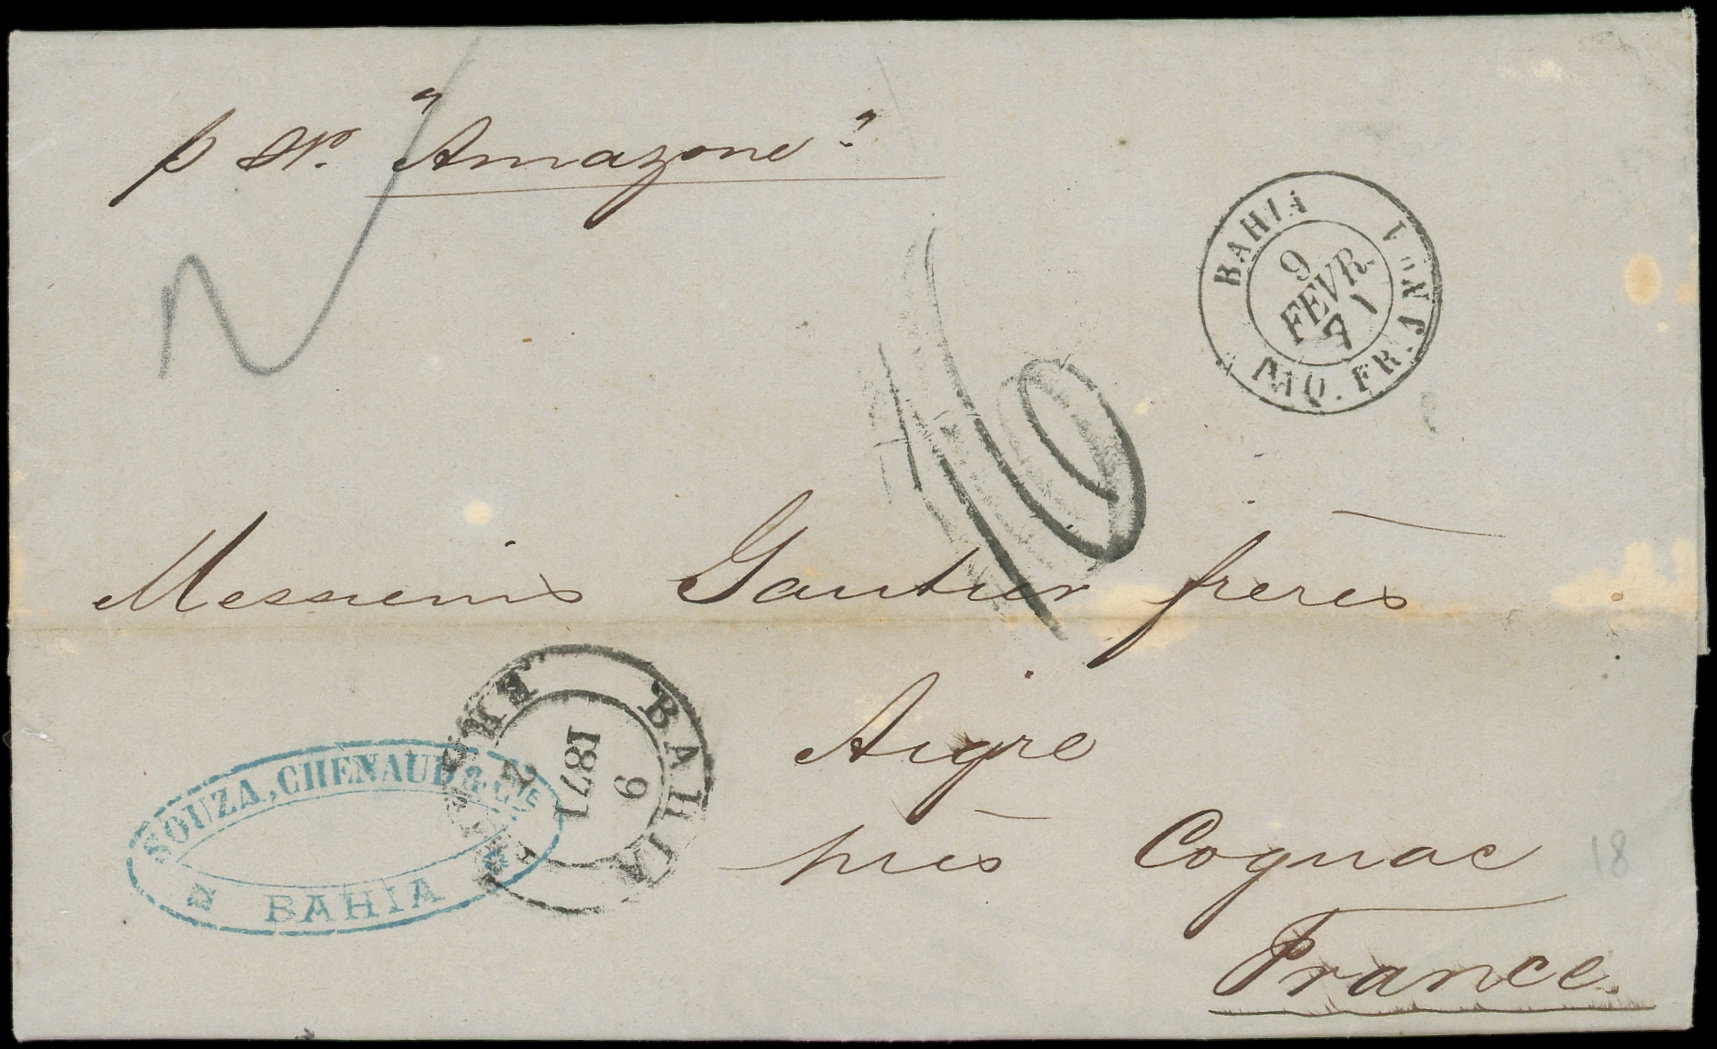 p Str. "Amazone"
BAHIA
9
FEVR.
71
PAQ. FR. J No 1
10
Messieurs Gautier frères
Aigre
près Cognac
France.
BAHIA
9
2
1871
SOUZA, CHENAUD & CIE
BAHIA
18